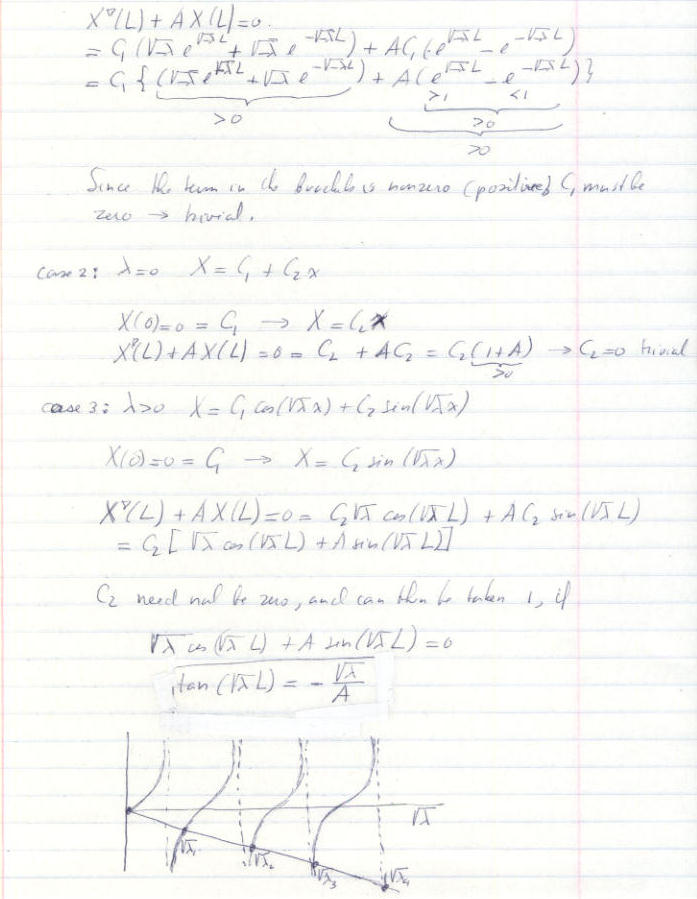 X'(L) + A X(L) = 0.
= C₁ (√-λ e^{√-λ L} + √-λ e^{-√-λ L}) + A C₁ (e^{√-λ L} - e^{-√-λ L})
= C₁ { (√-λ e^{√-λ L} + √-λ e^{-√-λ L}) + A (e^{√-λ L} - e^{-√-λ L}) }
>1 <1
>0 >0
>0
Since the term in the brackets is nonzero (positive) C₁ must be
zero → trivial.
case 2: λ=0 X = C₁ + C₂ x
X(0)=0 = C₁ → X = C₂ x
X'(L) + A X(L) = 0 = C₂ + A C₂ = C₂ (1+A) → C₂=0 trivial
>0
case 3: λ>0 X = C₁ cos(√λ x) + C₂ sin(√λ x)
X(0)=0 = C₁ → X = C₂ sin (√λ x)
X'(L) + A X(L) = 0 = C₂ √λ cos(√λ L) + A C₂ sin(√λ L)
= C₂ [ √λ cos(√λ L) + A sin(√λ L)]
C₂ need not be zero, and can then be taken 1, if
√λ cos(√λ L) + A sin(√λ L) = 0
tan (√λ L) = - √λ/A
√λ
√λ₁ √λ₂ √λ₃ √λ₄